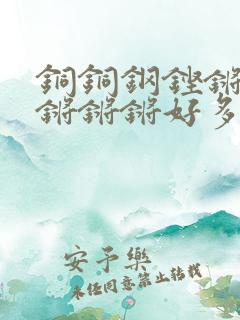 銅銅鋼鏗鏘
鏘鏘鏘好多
安予樂
未經同意禁止轉載